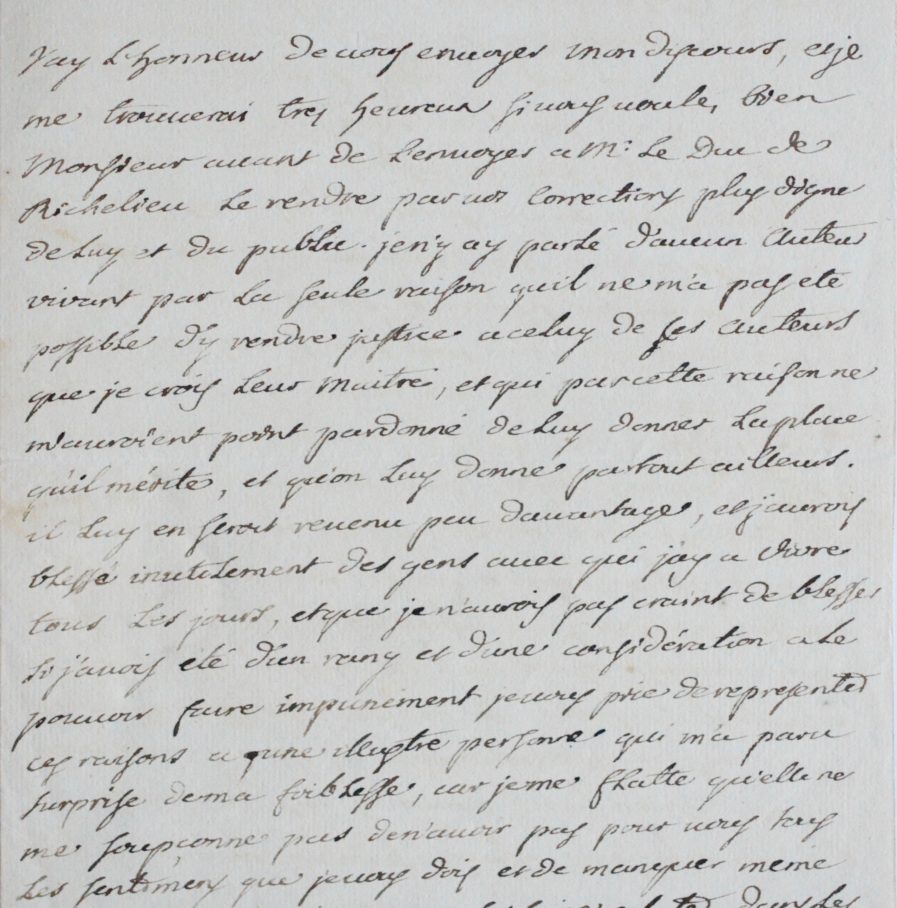 J'ay L'honneur de vous envoyer mon discours, et je
me trouverai tres heureux si vous voulez bien
Monsieur avant de L'envoyer a Mr. Le Duc de
Richelieu Le rendre par vos corrections plus digne
de Luy et du public. je n'y ay parlé d'aucun auteur
vivant par La seule raison quil ne m'a pas eté
possible d'y rendre justice a celuy de ses auteurs
que je crois Leur maitre, et qui par cette raison ne
m'auroient point pardonné de Luy donner La place
qu'il mérite, et qu'on Luy donne partout ailleurs.
il Luy en seroit revenu peu davantage, et j'aurois
blessé inutilement des gens avec qui j'ay a vivre
tous Les jours, et que je n'aurois pas craint de blesser
si j'avois été d'un rang et d'une considération a Le
pouvoir faire impunément je vous prie de representer
ces raisons a une illustre personne qui m'a paru
surprise de ma foiblesse, car je me flatte qu'elle ne
me soupçonne pas de n'avoir pas pour vous tous
Les sentimens que je vous dois et de manquer meme
dans Les